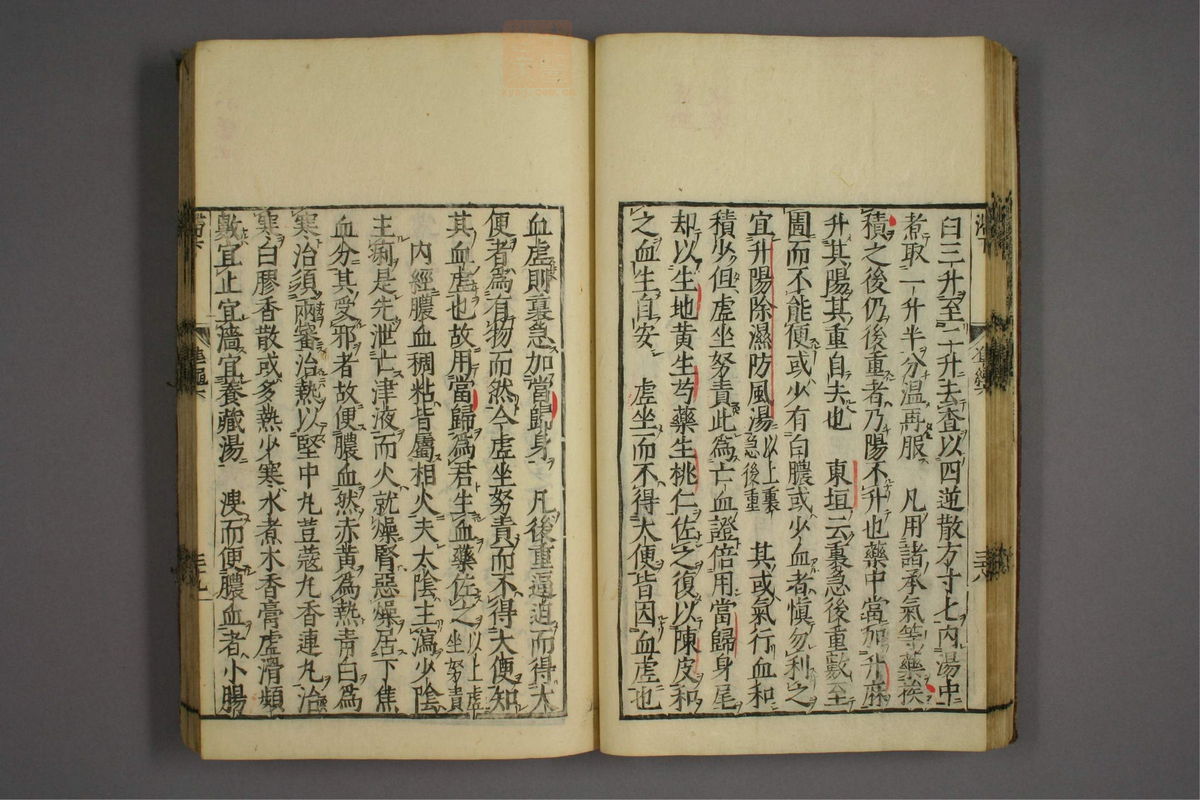 臼三升至一升去査以四逆散方寸七内湯中
煮取一升半分温再服　凡用諸承氣等藥挨
積之後仍後重者乃陽不升也藥中當加升麻
升其陽其重自夫也　東垣云裏急後重數至
圊而不能便或少有白膿或少血者慎勿利之
宜升陽除濕防風湯以上裏急後重　其或氣行血和
積少但虚坐努責此爲亡血證倍用當歸身尾
却以生地黄生芍藥生桃仁佐之復以陳皮和
之血生自安　虚坐而不得大便皆因血虚也
血虚則裏急加當歸身　凡後重逼迫而得大
便者爲有物而然今虚坐努責而不得大便知
其血虚也故用當歸爲君生血藥佐之以上虚坐努責
内經膿血稠粘皆屬相火夫太陰主瀉少陰
主痢是先泄亡津液而火就燥腎惡燥居下焦
血分其受邪者故便膿血然赤黄爲熱青白爲
寒治須兩審治熱以堅中丸荳蔻丸香連丸治
寒白膠香散或多熱少寒水煮木香膏虚滑頻
數宜止宜濇宜養藏湯　溲而便膿血者小腸